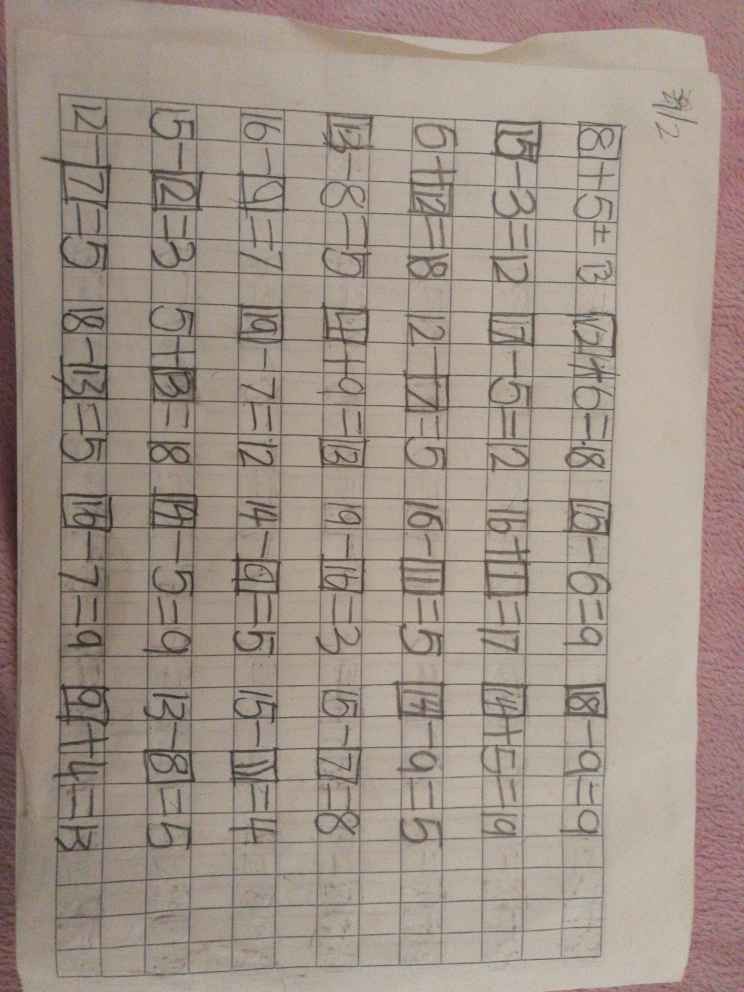 8+5=13 12+6=18 15-6=9 18-9=9
15-3=12 17-5=12 16+1=17 14+5=19
6+12=18 12-7=5 16-11=5 14-9=5
13-8=5 4+9=13 19-16=3 15-7=8
16-9=7 19-7=12 14-9=5 15-11=4
15-12=3 5+13=18 14-5=9 13-8=5
12-7=5 18-13=5 16-7=9 9+4=13